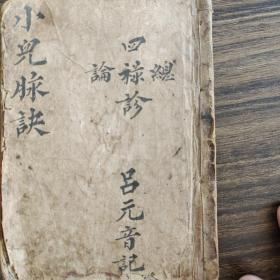 小兒脉訣
四𥙷診
總論
呂元音記